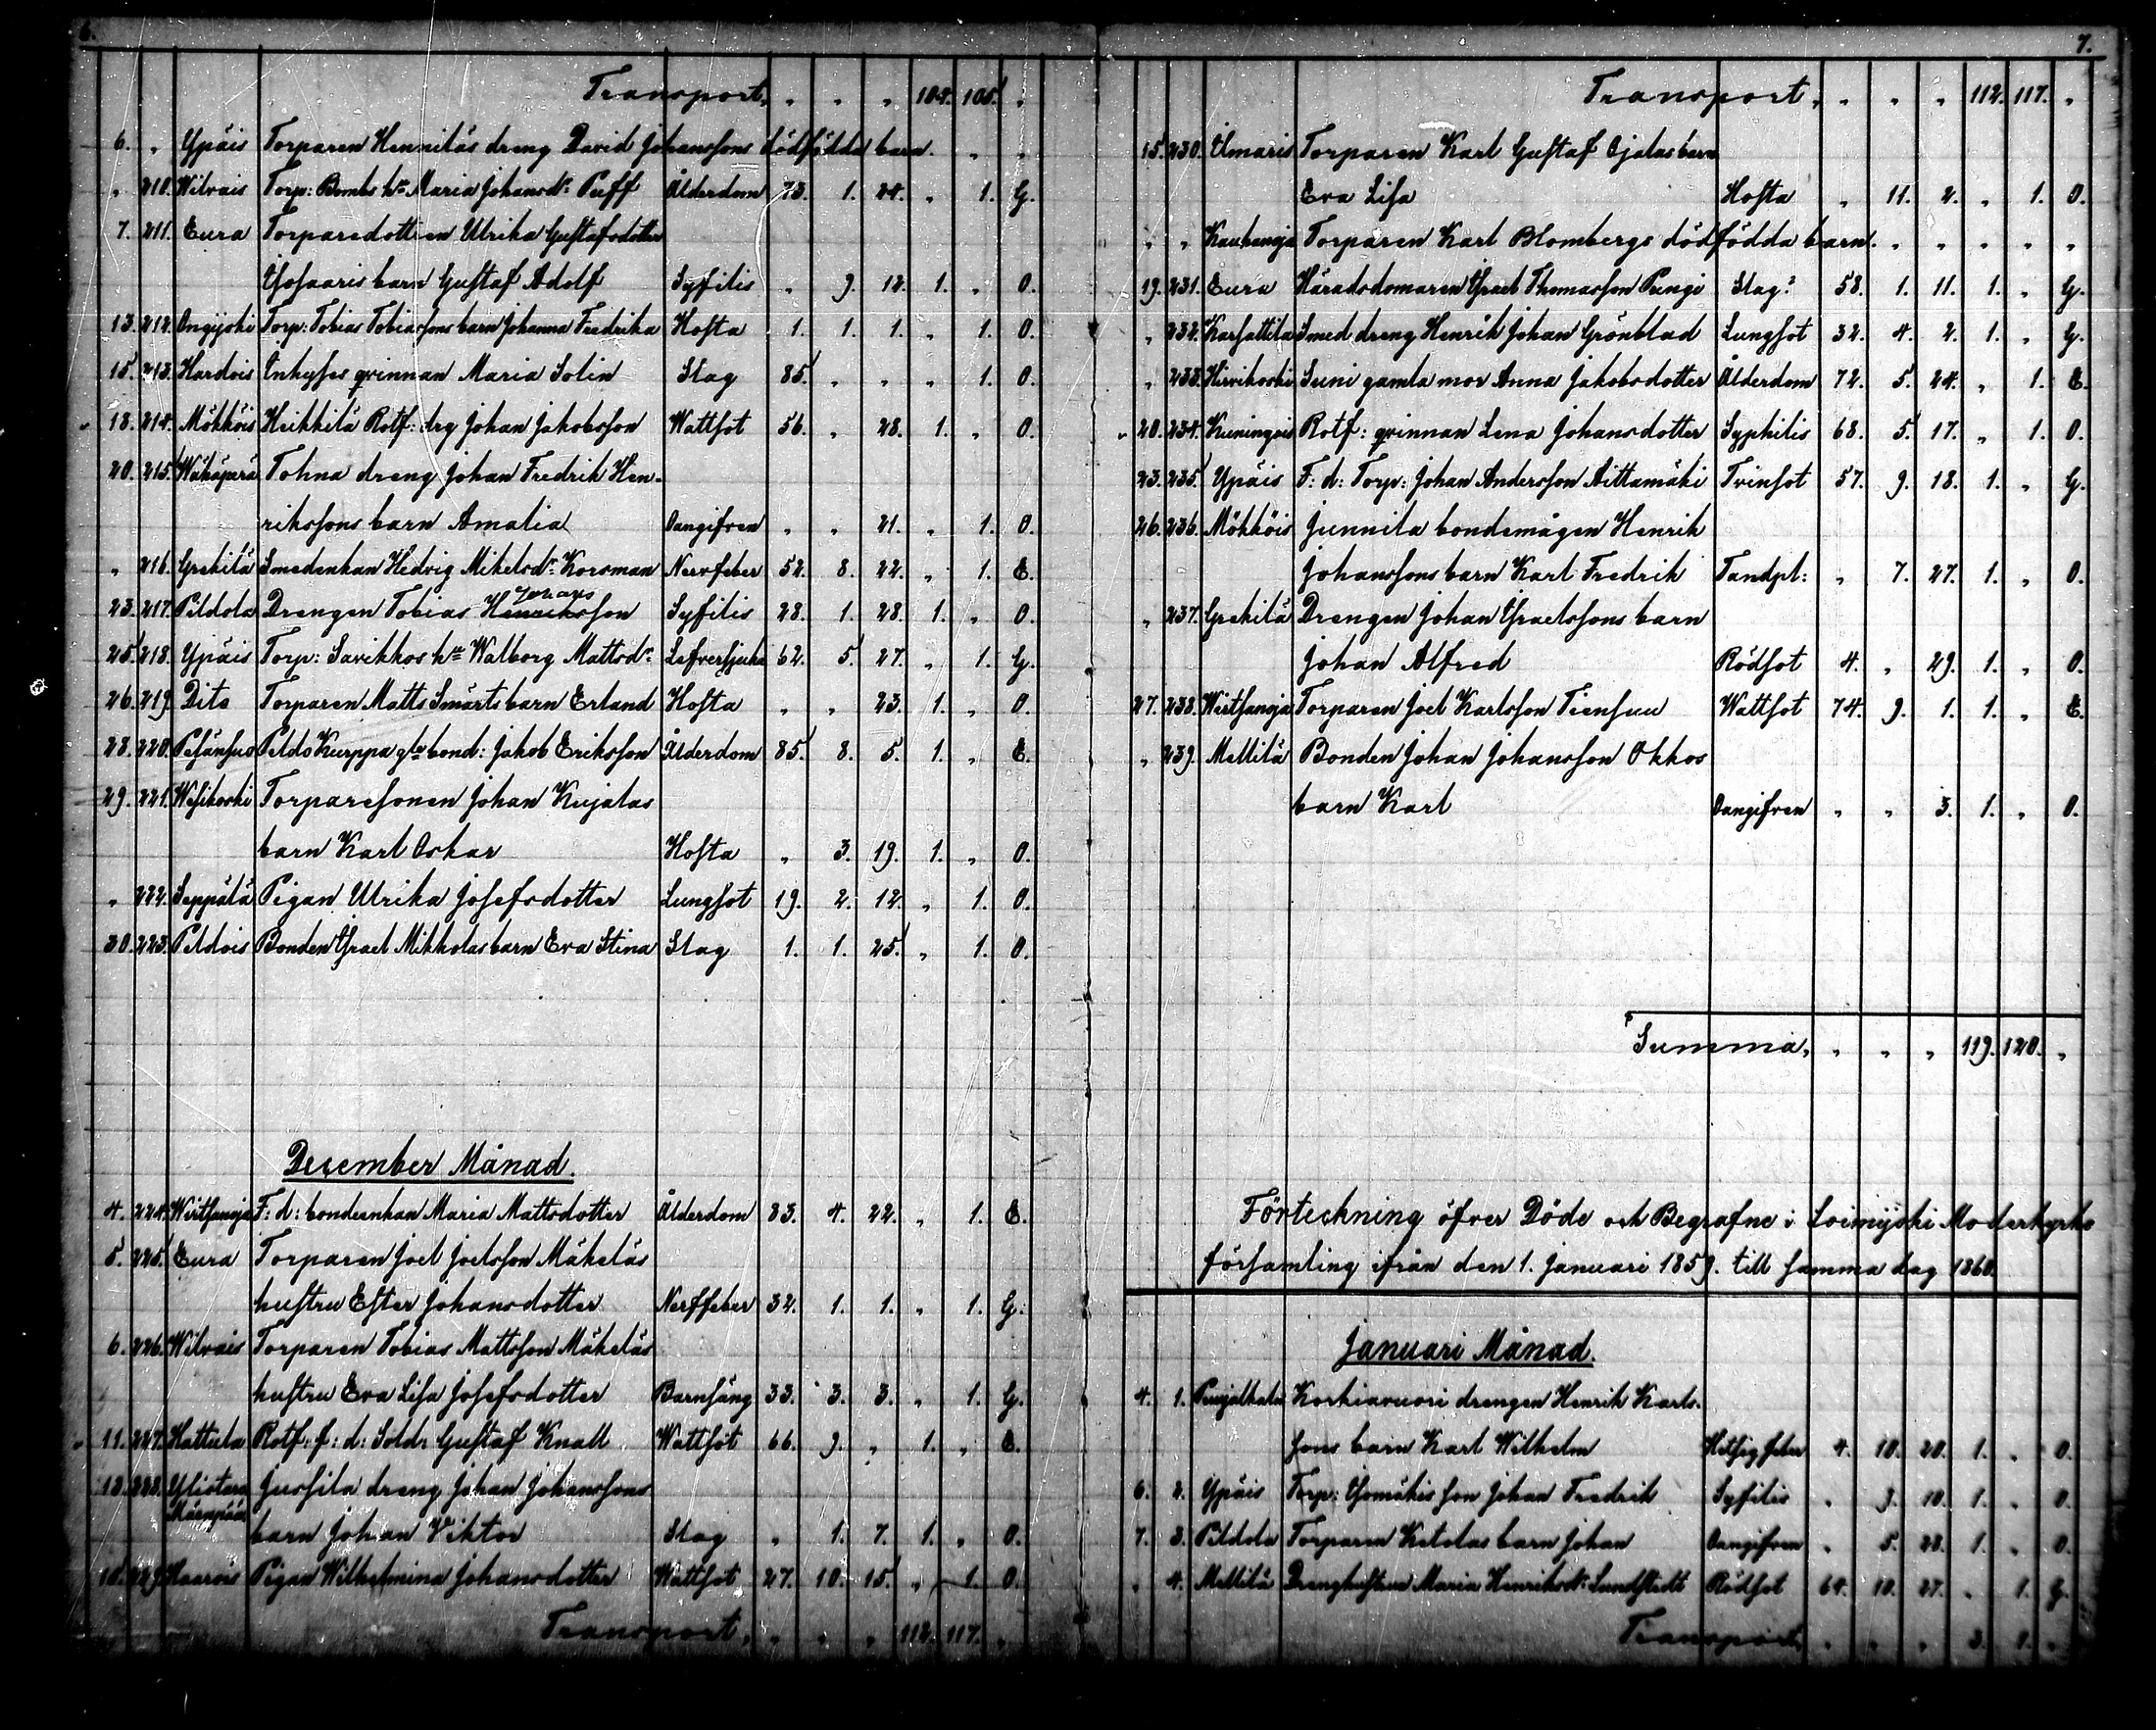 6.
Transport, „ „ „ 104. 105. „
6. „ Ypäis Torparen Henniläs dreng David Johanssons dödfödda barn. „ „
„ 210. Wilvais Torp: Bombs h:u Maria Johansd:r Puff Ålderdom 73. 1. 24. „ 1. G.
7. 211. Eura Torparedottren Ulrika Gustafsdotter
Isosaaris barn Gustaf Adolf Syfilis „ 9. 12. 1. „ O.
13. 212. Ongijoki Torp: Tobias Tobiassons barn Johanna Fredrika Hosta 1. 1. 1. „ 1. O.
15. 213. Hardois Inhyses qvinnan Maria Solin Slag 85. „ „ „ 1. O.
18. 214. Mökköis Heikkilä Rotf: drg Johan Jakobsson Wattsot 56. „ 28. 1. „ O.
20. 215. Wähäperä Tohna dreng Johan Fredrik Hen-
rikssons barn Amalia Oangifven „ „ 21. „ 1. O.
„ 216. Grekilä Smedenkan Hedvig Mikelsd:r Korsman Nervfeber 52. 8. 22. „ 1. E.
Johans
23. 217. Pildola Drengen Tobias Henriksson Syfilis 28. 1. 28. 1. „ O.
25. 218. Ypäis Torp: Savikkos h:u Walborg Mattsd:r Lefversjuka 62. 5. 27. „ 1. G.
26. 219. Dito Torparen Matts Smärts barn Erland Hosta „ „ 23. 1. „ O.
28. 220. Pesänsuo Peldo Kurppa gla bond: Jakob Eriksson Ålderdom 85. 8. 5. 1. „ E.
29. 221. Wesikoski Torparesonen Johan Kujalas
barn Karl Oskar Hosta „ 3. 19. 1. „ O.
„ 222. Seppälä Pigan Ulrika Josefsdotter Lungsot 19. 2. 12. „ 1. O.
30. 223. Peldois Bonden Israel Mikkolas barn Eva Stina Slag 1. 1. 25. „ 1. O.
December Månad.
4. 224. Wirtsanoja F: d: bondeenkan Maria Mattsdotter Ålderdom 83. 4. 22. „ 1. E.
5. 225. Eura Torparen Joel Joelsson Mäkeläs
hustru Ester Johansdotter Nerffeber 32. 1. 1. „ 1. G.
6. 226. Wilvais Torparen Tobias Mattsson Mäkeläs
hustru Eva Lisa Josefsdotter Barnsäng 33. 3. 3. „ 1. G.
11. 227. Hattula Rotf: f: d: Sold: Gustaf Knall Wattsot 66. 9. „ 1. „ E.
13. 228. Ylistaro Jussila dreng Johan Johanssons
barn Johan Viktor Slag „ 1. 7. 1. „ O.
229. Haarois Pigan Wilhelmina Johansdotter Wattsot 27. 10. 15. „ 1. O.
Transport, „ „ „ 112. 117. „
7.
Transport, „ „ „ 112. 117. „
15. 230. Ilmaris Torparen Karl Gustaf Ojalas barn
Eva Lisa Hosta „ 11. 2. „ 1. O.
„ „ Kauhanoja Torparen Karl Blombergs dödfödda barn. „ „ „ „ „
19. 231. Eura Häradsdomaren Israel Thomasson Pungi Slag 58. 1. 11. 1. „ G.
„ 232. Karsattila Smed dreng Henrik Johan Grönblad Lungsot 32. 4. 2. 1. „ G.
„ 233. Hirvikoski Suni gamla mor Anna Jakobsdotter Ålderdom 72. 5. 24. „ 1. E.
20. 234. Kuningois Rotf: qvinnan Lena Johansdotter Syphilis 68. 5. 17. „ 1. O.
23. 235. Ypäis F: d: Torp: Johan Andersson Aittamäki Tvinsot 57. 9. 18. 1. „ G.
26. 236. Mökköis Junnila bondemågen Henrik
Johanssons barn Karl Fredrik Tandpl: „ 7. 27. 1. „ O.
„ 237. Grekilä Drengen Johan Israelssons barn
Johan Alfred Rödsot 4. „ 29. 1. „ O.
27. 238. Wirtsanoja Torparen Joel Karlsson Tiensuu Wattsot 74. 9. 1. 1. „ E.
„ 239. Mellilä Bonden Johan Johansson Okkos
barn Karl Oangifven „ „ 3. 1. „ O.
Summa, „ „ „ 119. 120. „
Förteckning öfver Döde och Begrafne i Loimijoki Moderkyrko
församling ifrån den 1. Januari 1859. till samma dag 1860.
Januari Månad.
4. 1. Korkiavuori drengen Henrik Karls-
sons barn Karl Wilhelm Hetsig feber 4. 10. 20. 1. „ O.
6. 2. Ypäis Torp: Isomäkis son Johan Fredrik Syfilis „ 9. 10. 1. „ O.
7. 3. Pildola Torparen Ketolas barn Johan Oangifven „ 5. 28. 1. „ O.
„ 4. Mellilä Drenghustrun Maria Henriksd:r Sundstedt Rödsot 64. 10. 27. „ 1. G.
Transport, „ „ „ 3. 1. „